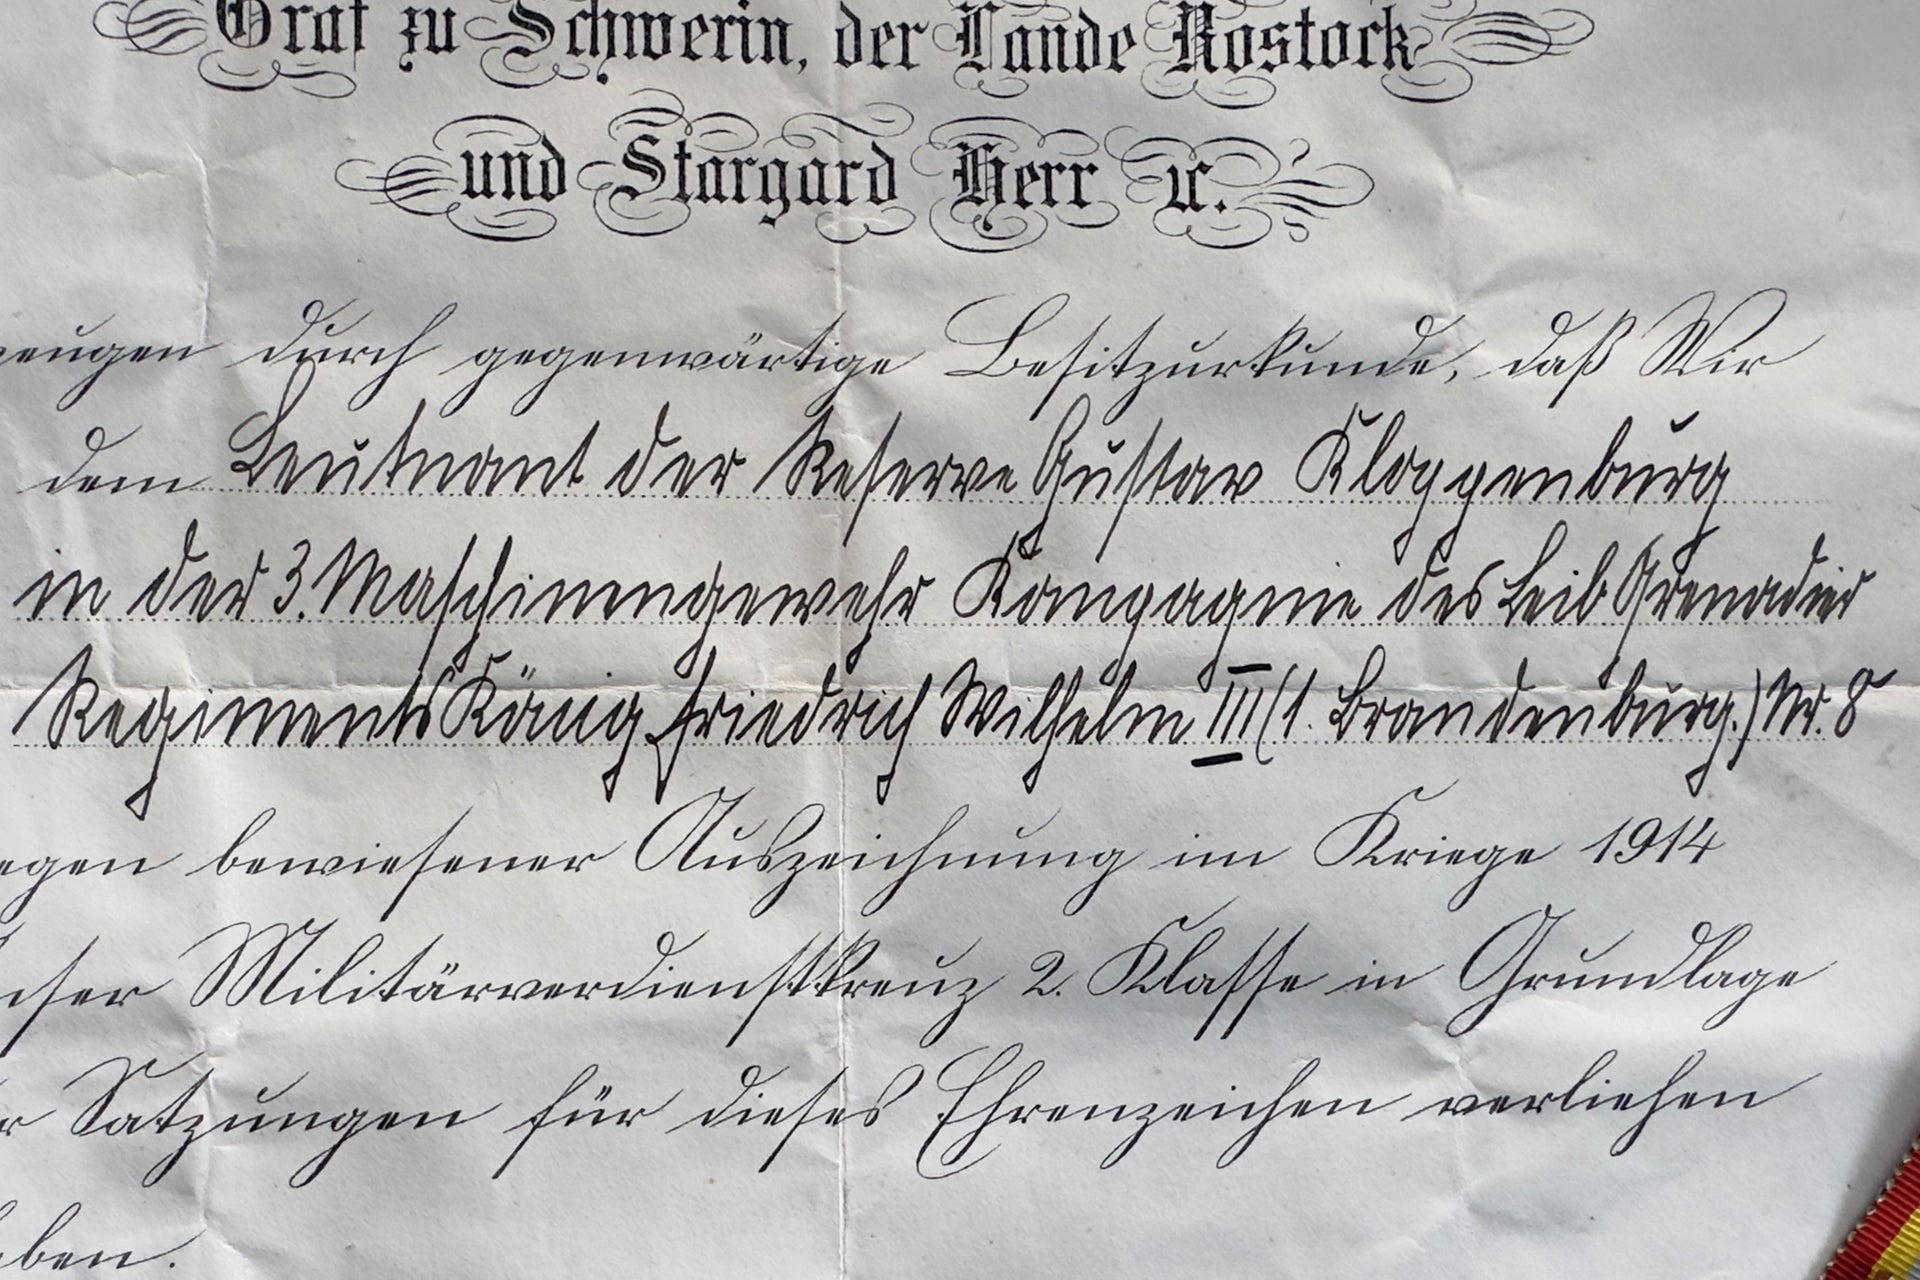 Graf zu Schwerin, der Lande Rostock
und Stargard Herr ꝛc.
zeugen durch gegenwärtige Besitzurkunde, daß Wir
dem Leutnant der Reserve Gustav Kloppenburg
in der 3. Maschinengewehr Kompagnie des Leib Grenadier
Regiments König Friedrich Wilhelm III (1. Brandenburg.) Nr. 8
egen bewiesener Auszeichnung im Kriege 1914
nser Militärverdienstkreuz 2. Klasse in Grundlage
r Satzungen für dieses Ehrenzeichen verliehen
aben.